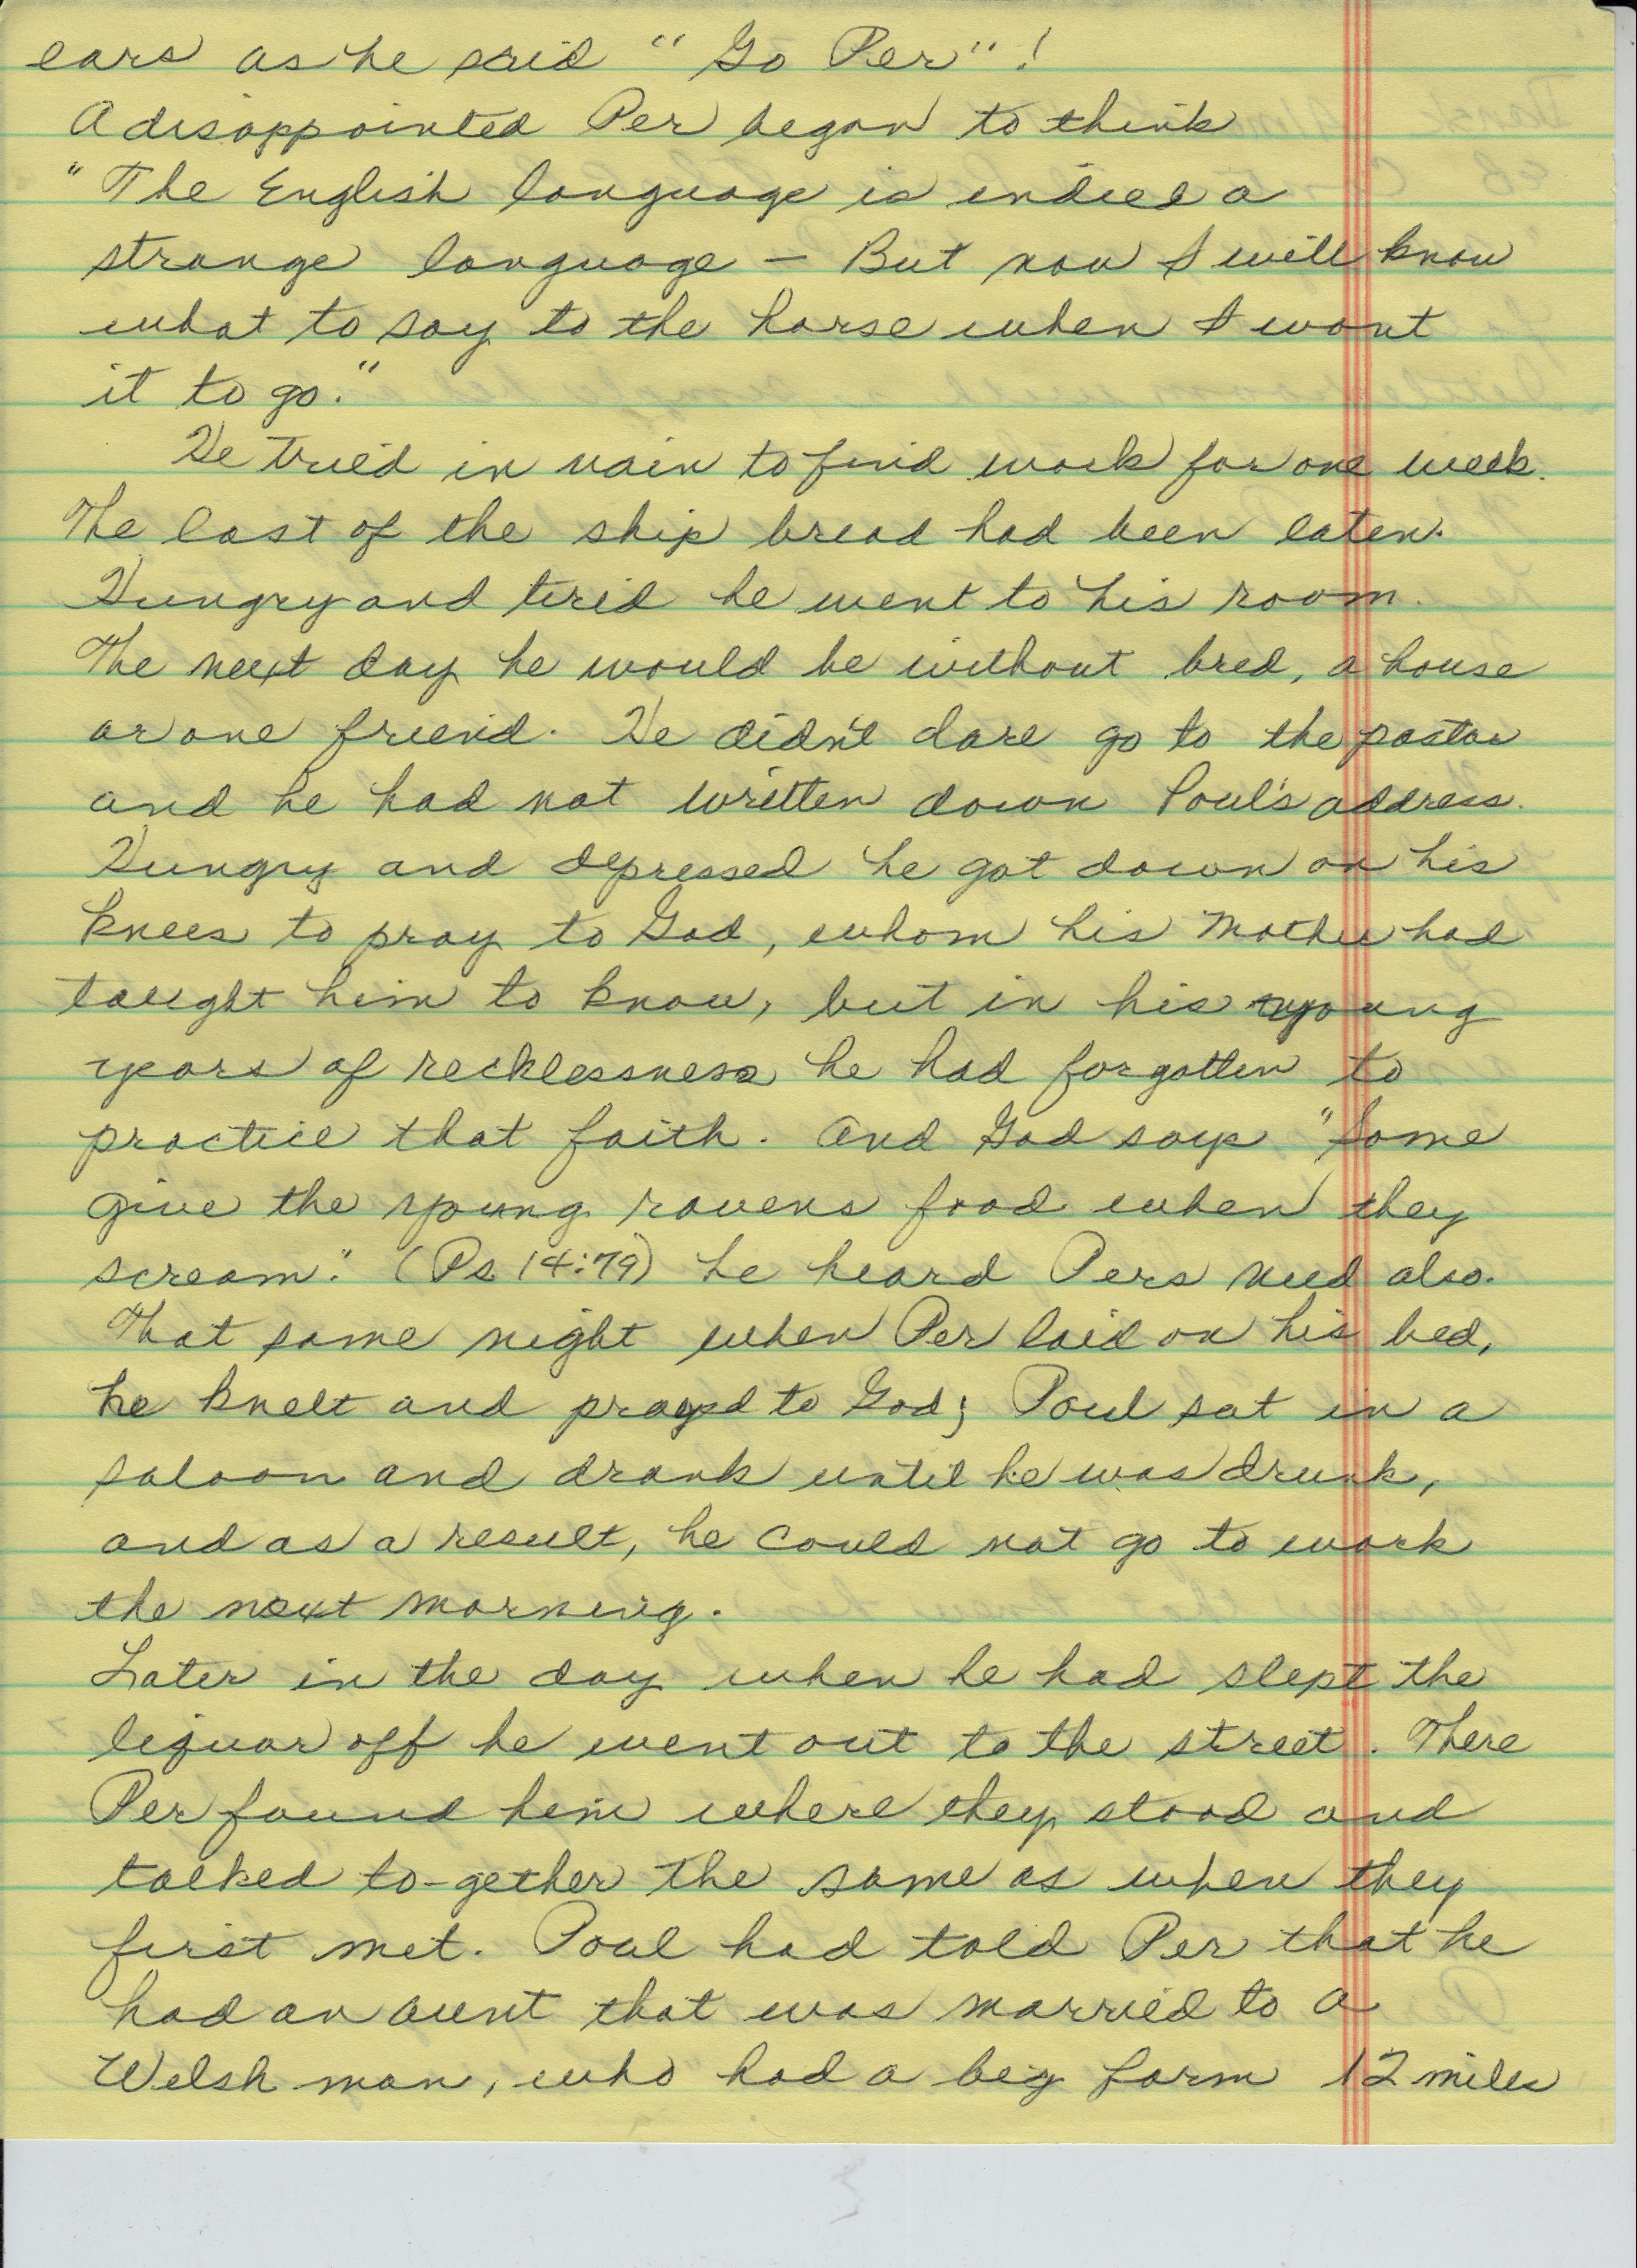 ears as he said "Go Per"!
A disappointed Per began to think
"The English language is indeed a
strange language – But now I will know
what to say to the horse when I want
it to go."
He tried in vain to find work for one week.
The last of the ship bread had been eaten.
Hungry and tired he went to his room.
The next day he would be without bred, a house
or one friend. He didn't dare go to the pastor
and he had not written down Poul's address.
Hungry and depressed he got down on his
knees to pray to God, whom his Mother had
taught him to know, but in his young
years of recklessness he had forgotten to
practice that faith. And God says "Some
give the young ravens food when they
scream." (Ps 14:79) he heard Pers need also.
That same night when Per laid on his bed,
he knelt and prayed to God; Poul sat in a
saloon and drank until he was drunk,
and as a result, he could not go to work
the next morning.
Later in the day when he had slept the
liquor off he went out to the street. There
Per found him where they stood and
talked to-gether the same as when they
first met. Poul had told Per that he
had an aunt that was married to a
Welsh man, who had a big farm 12 miles